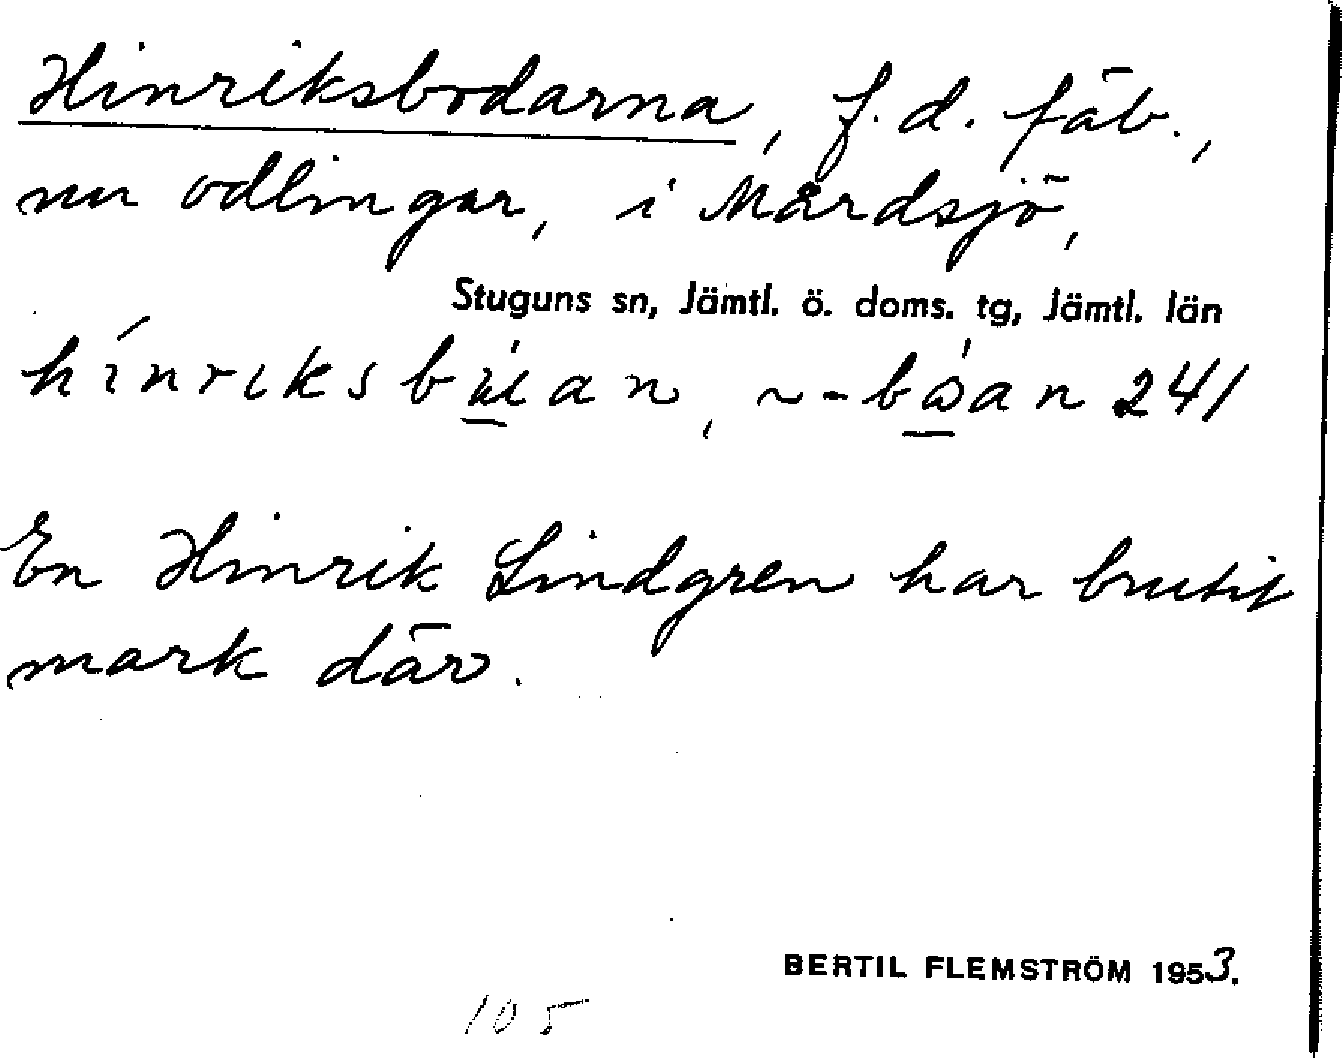 Hinriksbodarna, f.d. fäb.,
nu odlingar, i Mårdsjö,
Stuguns sn, Jämtl. ö. doms. tg, Jämtl. län
hínriks 241
En Hinrik Lindgren har brutit
mark där.
BERTIL FLEMSTRÖM 1953.
105